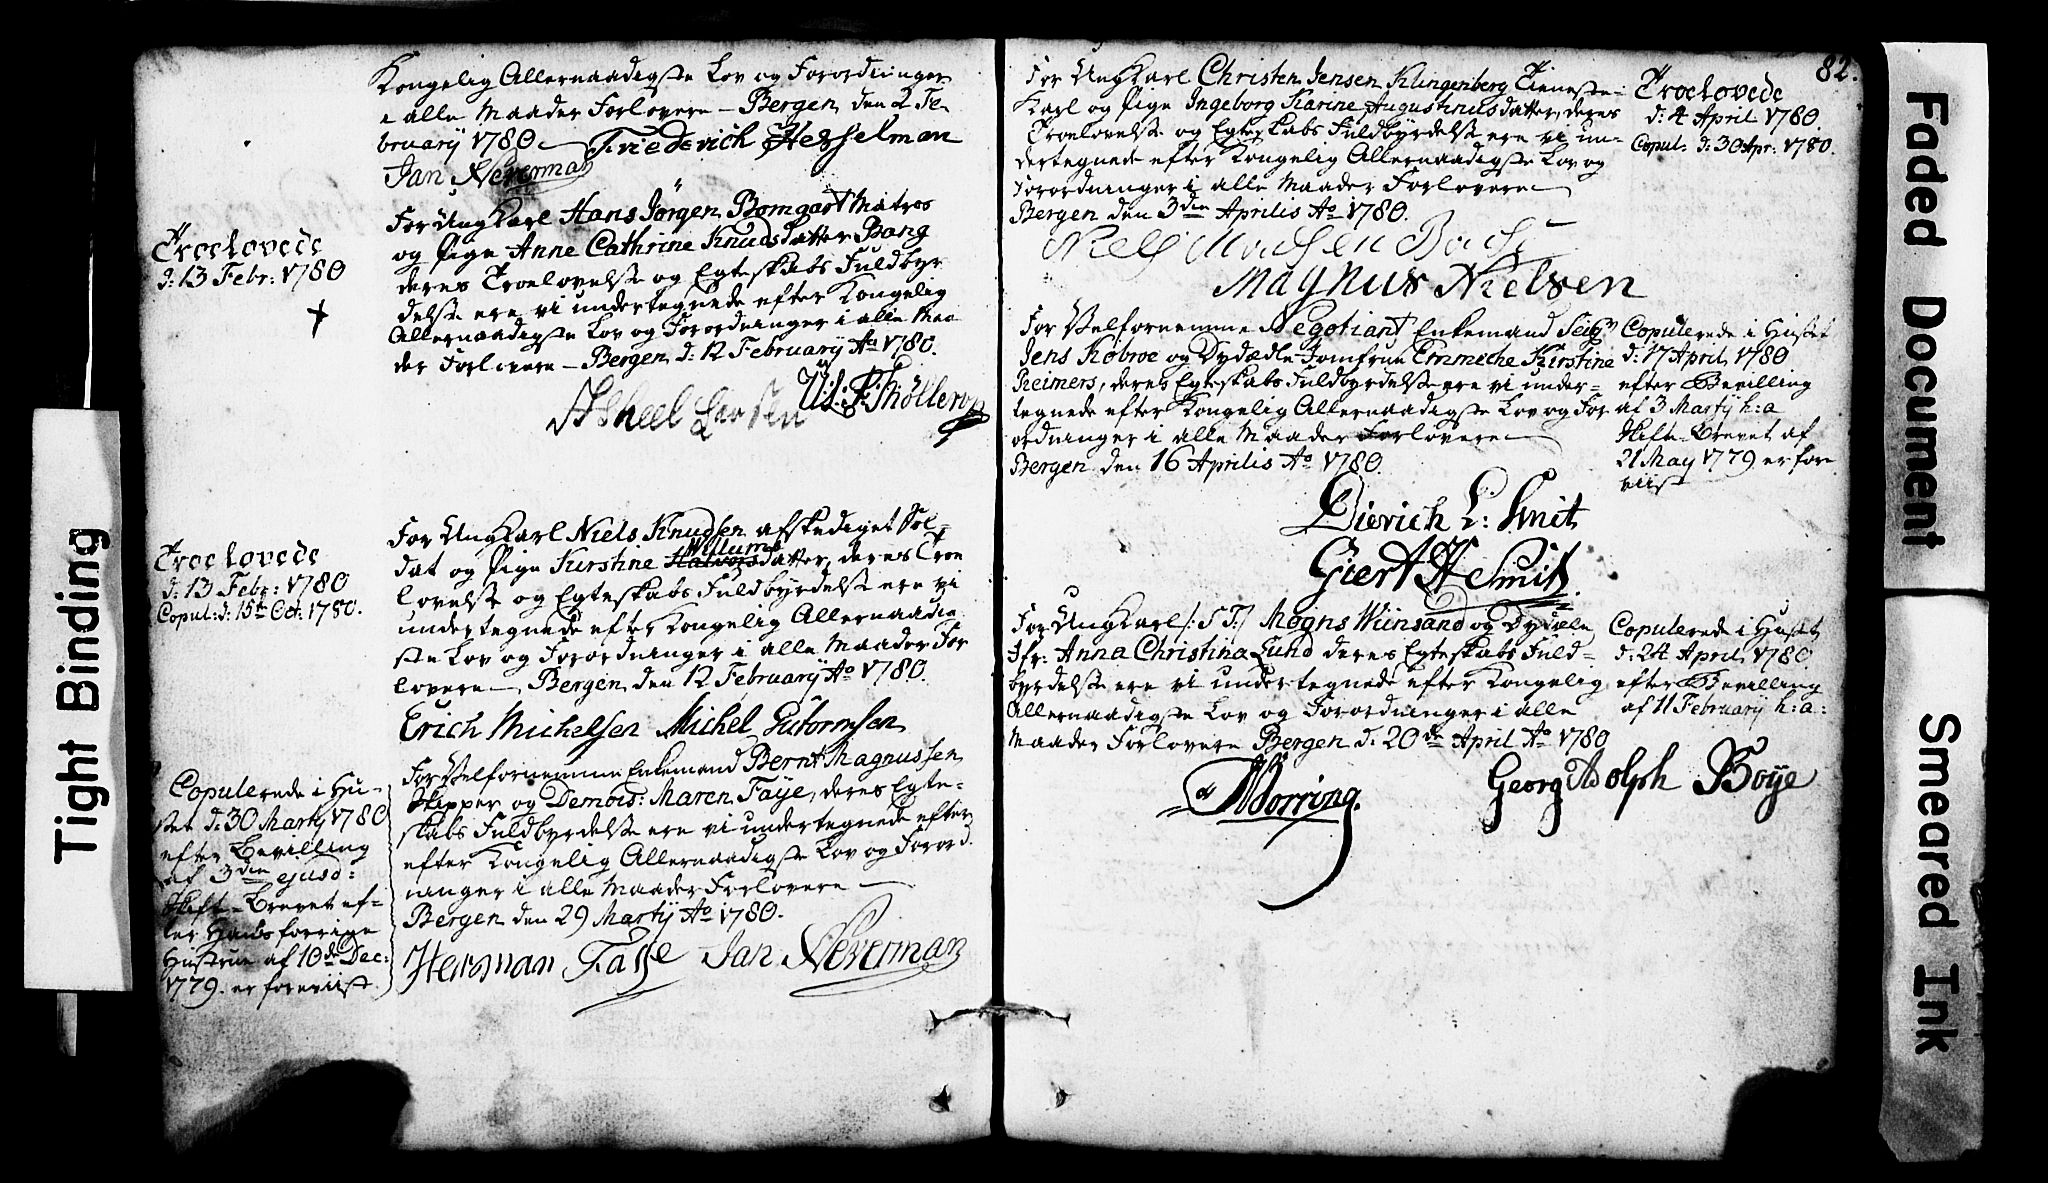 Kongelig Allernaadigste Lov og Forordninger
i alle Maader Forlovere – Bergen den 2 Fe-
bruarij 1780 – Friederich Hesselman
Jan Neverman
Troelovede
d: 13 Febr: 1780
For Ung Karl Hans Jørgen Bomgart Matros
og Pige Anne Cathrine Knudsdatter Bang
deres Troelovelse og Egteskabs Fuldbyr
delse ere vi undertegnede efter Kongelig
Allernaadigste Lov og Forordninger i alle Maa
der Forlovere – Bergen d: 12 February Ao 1780.
Troelovede
d: 13 Febr: 1780
Copul: d: 15de Oct: 1780.
For Ung Karl Niels Knudsen afskediget Sol-
dat og Pige Kirstine Halvors Willums datter, deres Troe
lovelse og Egteskabs Fuldbyrdelse ere vi
undertegnede efter Kongelig Allernaadig
ste Lov og Forordninger i alle Maader For
lovere – Bergen den 12 February Ao 1780.
Erich Michelsen Michel Guttormsen
Copulerede i Hu-
set d: 30 Martij 1780
efter Bevilling
af 3die ejusd:
Skifte-Brevet ef-
ter Hands forrige
Hustrue af 10de Dec:
1779. er foreviist
For Velfornemme Enkemand Bernt Magnussen
Skipper og Demois: Maren Faÿe, deres Egte-
skabs Fuldbyrdelse ere vi undertegnede efter
efter Kongelig Allernaadigste Lov og Forord-
ninger i alle Maader Forlovere –
Bergen den 29 Martij Ao 1780.
Herman Faÿe Jan Neverman
82.
For Ung Karl Christen Jensen Klingenberg Tieneste-
Karl og Pige Ingeborg Karine Augustinusdatter, deres
Troelovelse og Egteskabs Fuldbyrdelse ere vi un-
dertegnede efter Kongelig Allernaadigste Lov og
Forordninger i alle Maader Forlovere –
Bergen den 3die Aprilis Ao 1780.
Troelovede
d: 4 April 1780
Copul: d: 30 Apr: 1780.
Niels Madsen
Magnus Nielsen
For Velfornemme Negotiant Enkemand Seigr
Jens Købroe og Dydædle Jomfrue Emmeche Kirstine
Reimers, deres Egteskabs Fuldbyrdelse ere vi under-
tegnede efter Kongelig Allernaadigste Lov og For
ordninger i alle Maader Forlovere –
Bergen den 16 Aprilis Ao 1780.
Copulerede i Huset
d: 17 April 1780
efter Bevilling
af 3 Martij h: a
Skifte-Brevet af
21 May 1779 er fore
viist
Dierich L: Smit
Giert H Smit
For Ung Karl /: S T:/ Mogns Wiinsand og Dydædle
Jfr: Anna Christina Lund deres Egteskabs Fuld-
byrdelse ere vi undertegnede efter Kongelig
Allernaadigste Lov og Forordninger i alle
Maader Forlovere Bergen d: 20de April Ao 1780
Copulerede i Huset
d: 24 April 1780
efter Bevilling
af 11 February h: a:
Morring.
Georg Adolph Boÿe
Tight Binding
Faded Document
Smeared Ink